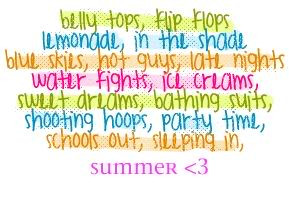 belly tops, flip flops
lemonade, in the shade
blue skies, hot guys, late nights
water fights, ice creams,
sweet dreams, bathing suits,
shooting hoops, party time,
schools out, sleeping in,
summer <3